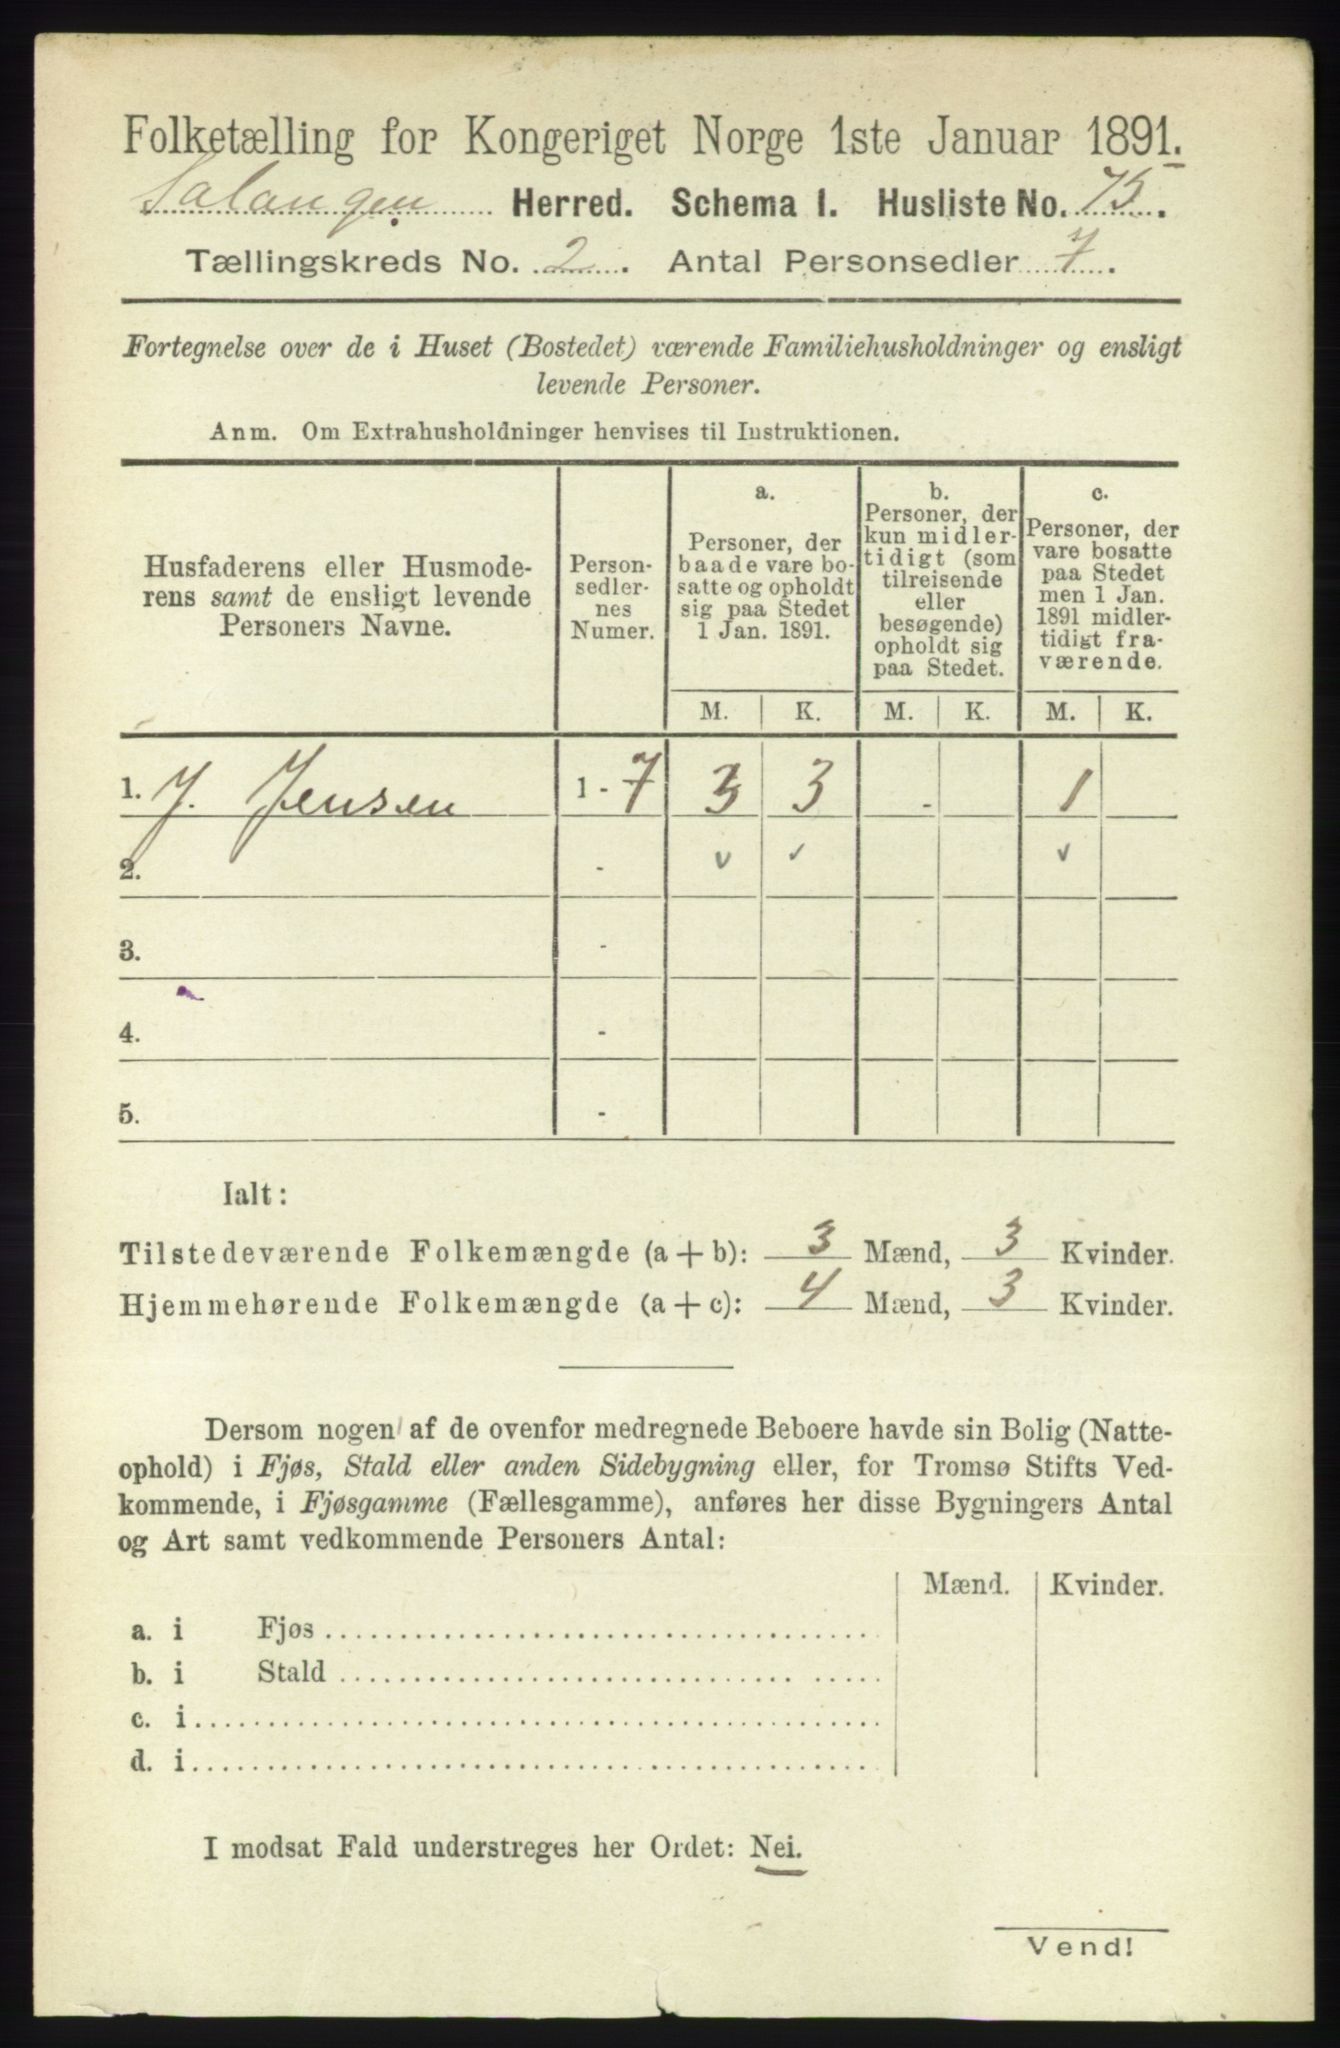 Folketælling for Kongeriget Norge 1ste Januar 1891.
Salangen Herred. Schema 1. Husliste No. 75.
Tællingskreds No. 2. Antal Personsedler 7.
Fortegnelse over de i Huset (Bostedet) værende Familiehusholdninger og ensligt
levende Personer.
Anm. Om Extrahusholdninger henvises til Instruktionen.
Husfaderens eller Husmode-
rens samt de ensligt levende
Personers Navne.
Person-
sedler-
nes
Numer.
a.
Personer, der
baade vare bo-
satte og opholdt
sig paa Stedet
1 Jan. 1891.
b.
Personer, der
kun midler-
tidigt (som
tilreisende
eller
besøgende)
opholdt sig
paa Stedet.
c.
Personer, der
vare bosatte
paa Stedet
men 1 Jan.
1891 midler-
tidigt fra-
værende.
M. K. M. K. M. K.
1. J. Jensen 1 - 7 3 3 - 1
2. - ✓ ✓ ✓
3. -
4. -
5. -
Ialt:
Tilstedeværende Folkemængde (a + b): 3 Mænd, 3 Kvinder.
Hjemmehørende Folkemængde (a + c): 4 Mænd, 3 Kvinder.
Dersom nogen af de ovenfor medregnede Beboere havde sin Bolig (Natte-
ophold) i Fjøs, Stald eller anden Sidebygning eller, for Tromsø Stifts Ved-
kommende, i Fjøsgamme (Fællesgamme), anføres her disse Bygningers Antal
og Art samt vedkommende Personers Antal:
Mænd. Kvinder.
a. i Fjøs
b. i Stald
c. i
d. i
I modsat Fald understreges her Ordet: Nei.
Vend!